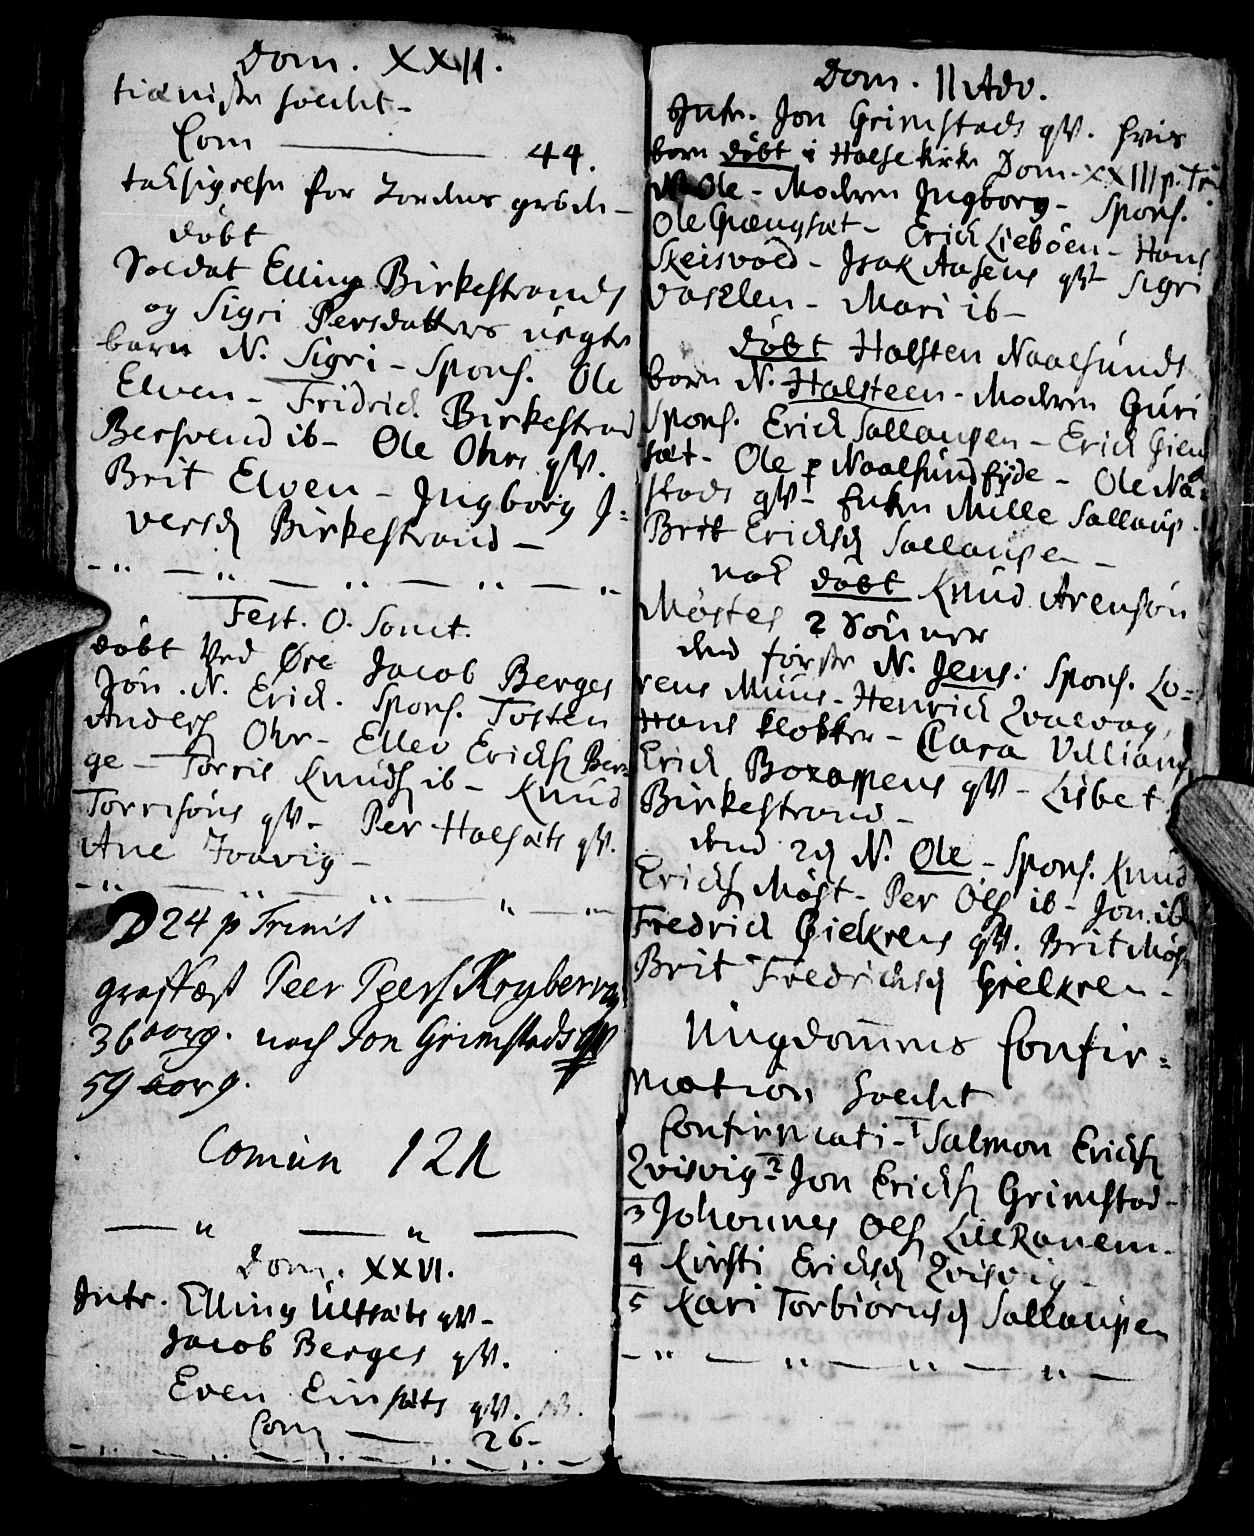 Dom. XXII.
tienisten holdt -
Com — 44.
taksigelse for Jordens grøde -
døbt
Soldat Elling Birkestrands
og Sigri Persdatters uegte
barn N. Sigri - Spons. Ole
Elven - Fridrich Birkestrand
Bersvend ib - Ole Ohrs qv.
Brit Elven - Ingborg I=
versd Birkestrand -
Fest. O. Sanct.
døbt ved Øre Jacob Berges
Jon. N. Erich. Spons. Tosten
Anders Ohr - Ellev Erichs Ber=
ge - Torris Knuds ib - Knud
Torrisøns qv - Per Halsæts qv.
Ane Todvig -
D 24 p Trinit
graffæst Peer Peers Krybervig
36 aarg. noch Jon Grimstads qv
59 aarg.
Comun 121
Dom. XXVI.
Intr. Elling Ultsæts qv -
Jacob Berges qv.
Even Einsæts qv.
Com — 26 -
Dom. II Adv.
Intr. Jon Grimstads qv. hvis
barn døbt i Halse kirke Dom. XXIII p. Tri
N. Ole - Modren Ingborg - Spons.
Ole Giengsæt - Erich Liebøen - Hans
Skeisvold - Isak Aasens qv - Sigri
Vaslen - Mari ib -
døbt Halsten Naalsunds
barn N. Halsteen - Modren Guri
Spons. Erich Sallaupen - Erich Gien
sæt - Ole p Naalsundsyde - Ole Na=
stads qv - Enken Mille Sallaup.
Brit Erichsd Sallaupen -
nok døbt Knud Arensøn
Møstes 2 Sønner
den første N. Jens: Spons. Lo=
rens Muus - Henrich Qvalvag,
Hans klokker - Clara Villiams
Erich Boxaspens qv - Lisbet
Birkestrand -
den 2d N. Ole - Spons. Knud
Erichs Møst - Per Ols ib - Jon ib
Fredrich Gielkrens qv. Brit Møst
Brit Fredrichsd Gielkren -
Ungdommens Confir=
mation holdt
Confirmati - 1 Salmon Erichs
Qvisvig 2 Jon Erichs Grimstad -
3 Johannes Ols Lille Ranem -
4 Kirsti Erichsd Qvisvig -
5 Kari Torbiørnsd Sallaupen